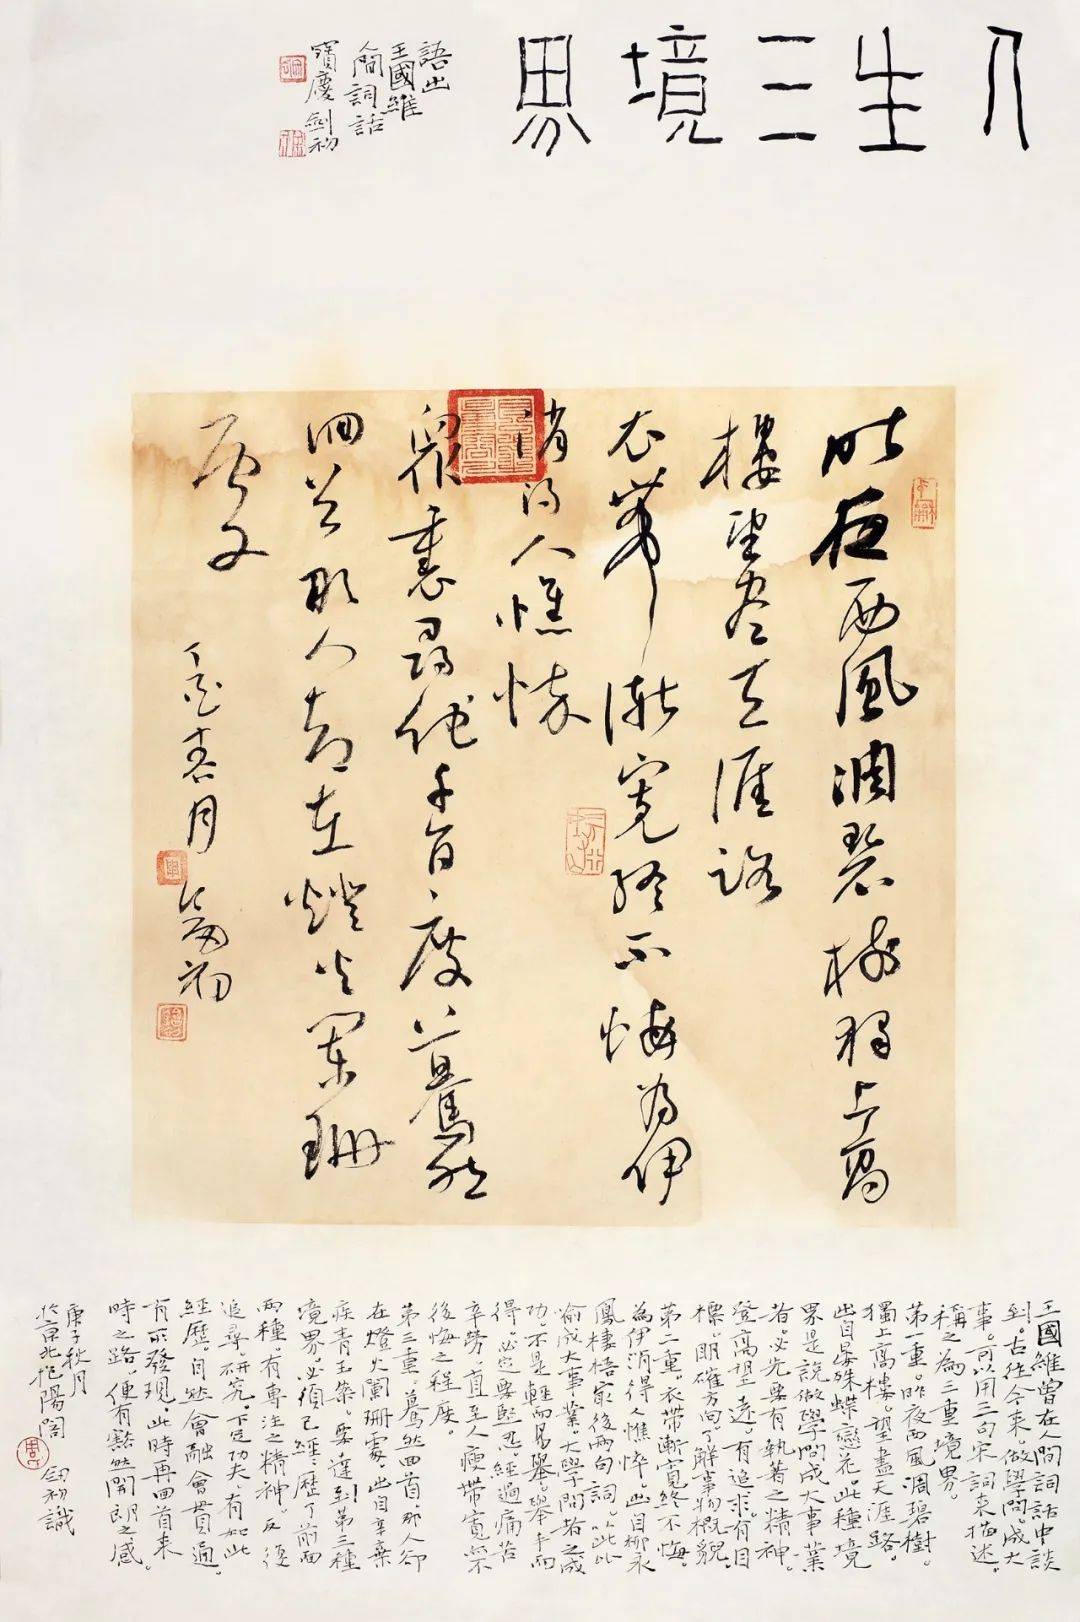 人生三境界
語出
王國維
人間詞話
寶慶劍初
昨夜西風凋碧樹獨上高
樓望盡天涯路
衣帶漸寬終不悔為伊
消得人憔悴
眾裏尋他千百度驀然
回首那人却在燈火闌珊
處
丁酉春月
劍初
王國維曾在人間詞話中談
到。古往今來。做學問。成大
事。可以用三句宋詞來描述。
稱之為三重境界。
第一重。昨夜西風凋碧樹。
獨上高樓。望盡天涯路。
此自晏殊蝶戀花。此種境
界是說做學問成大事業
者。必先要有執著之精神。
登高望遠。有追求。有目
標。明確方向。了解事物概貌。
第二重。衣帶漸寬終不悔。
為伊消得人憔悴。此自柳永
鳳棲梧最後兩句詞。以此比
喻成大事業。大學問者之成
功。不是輕而易舉。舉手而
得。必定要堅忍。經過痛苦
辛勞。直至人瘦帶寬不
後悔之程度。
第三重。驀然回首。那人卻
在燈火闌珊處。此自辛棄
疾青玉案。要達到第三種
境界。必須已經歷了前面
兩種。有專注之精神。反復
追尋。研究。下足功夫。有如此
經歷。自然會融會貫通。
有所發現。此時再回首來
時之路。便有豁然開朗之感。
庚子秋月
於京北抱陽閣 劍初識